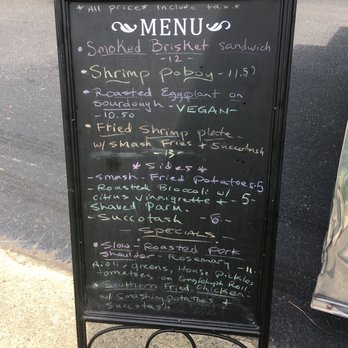 * All prices include tax *
MENU
• Smoked Brisket sandwich
-12-
• Shrimp poboy - 11.50
• Roasted Eggplant on
sourdough - VEGAN -
-10.50
• Fried Shrimp plate
w/ smash Fries + Succotash
- 13 -
* Sides *
- smash - Fried potatoes - 5
- Roasted Broccoli w/
citrus vinnigrette + - 5-
Shaved Parm.
- Succotash - 6 -
- Specials
• Slow - Roasted Pork
Shoulder - Rosemary - 11 -
Aioli, greens, House Pickles
tomatoes on
• Southern Fried Chicken -
w/ Smashing potatoes +
Succotash